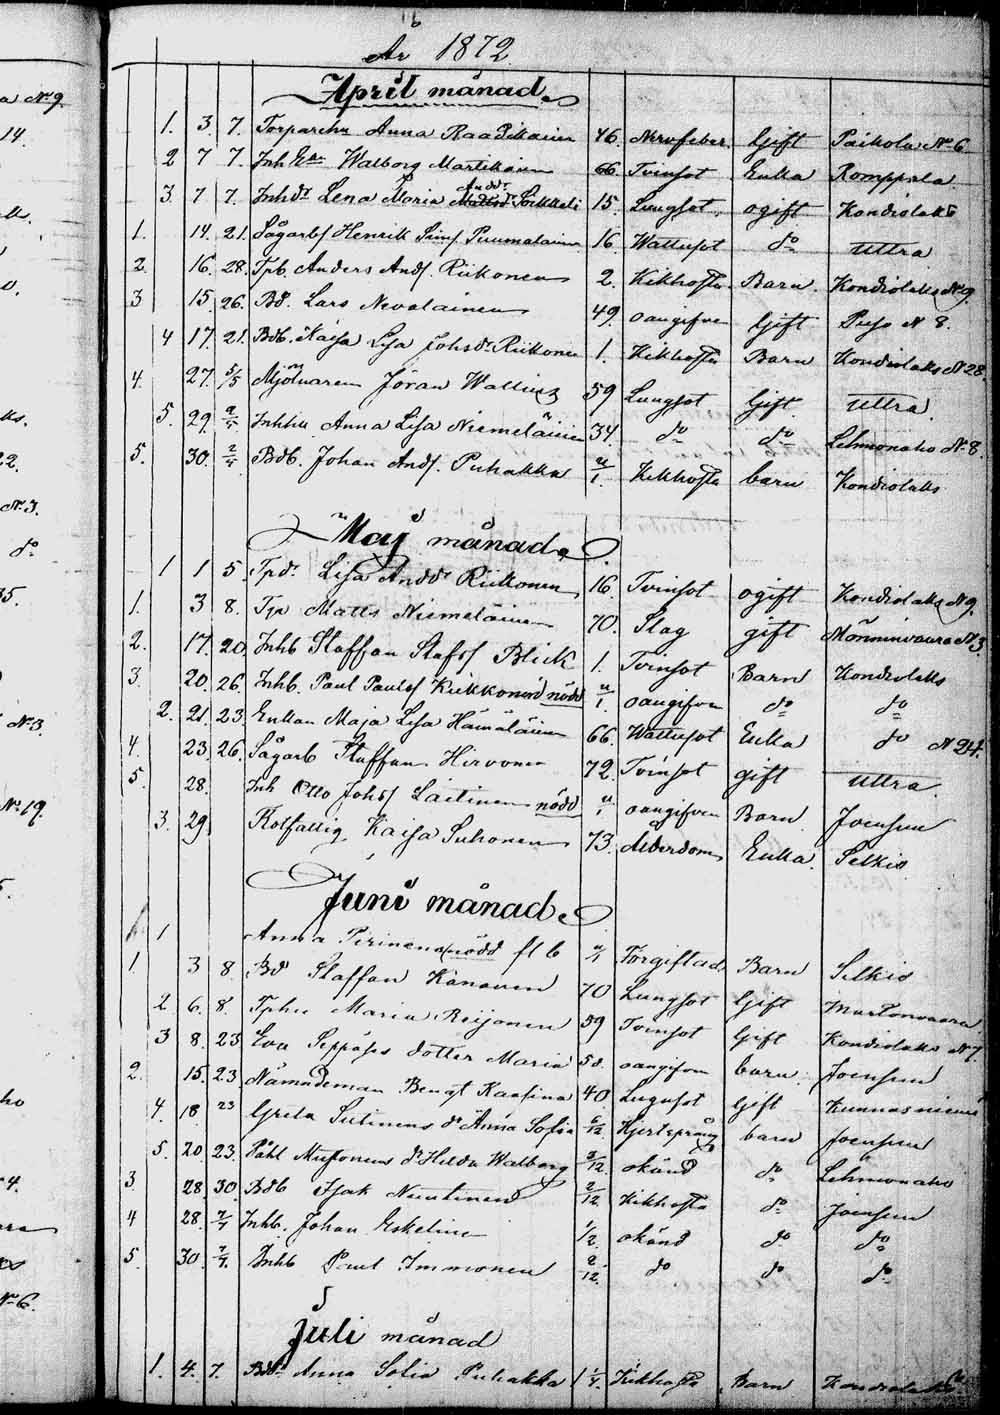 a No 9.
År 1872
April månad
1. 3. 7. Torparehu Anna Raatikainen 46. Nervfeber. Gift Paihola No 6
2 7 7. Inh Enka Walborg Martikainen 66. Tvinsot Enka Romppala
3. 7 7. Inhdr Lena Maria Andsdr Sikkeli 15. Lungsot. ogift Kondiolaks
1. 14. 21. Sågarbs Henrik Simss Puumalainen 16 Wattusot do Uttra
2. 16. 28. Tpb. Anders Andss Riikonen 2. Kikhosta Barn. Kondiolaks No 9.
3 15. 26. Bd. Lars Nevalainen 49. oangifven Gift Puso N 8.
4 17. 21. Bdb. Kaisa Lisa Johsdr Riikonen 1. Kikhosta Barn Kondiolaks N 28.
4. 27. 5/5 Mjölnaren Jöran Wallius 59 Lungsot Gift Uttra.
5. 29. Inhhu Anna Lisa Niemeläinen 34. do do Lehmonaho N 8.
5. 30. Bdb. Johan Andss Puhakka 4/1. Kikhosta barn Kondiolaks
Maj månad
1 1 5 Tpdr Lisa Andsdr Riikonen 16. Tvinsot ogift Kondiolaks N 9.
1. 3 8. Tp Matts Niemeläinen 70. Slag gift Mönninvaara N 3.
2. 17. 20. Inhb Staffan Stafss Blick 1. Tvinsot Barn Kondiolaks
3. 20. 26. Inhb. Paul Paulss Kukkonen nödd oangifven do do
2. 21. 23. Enkan Maja Lisa Hämäläinen 66. Wattusot Enka do N 24.
4. 23. 26. Sågarb Staffan Hirvonen 72. Tvinsot gift Uttra.
5. 28. Inh Otto Johss Laitinen nödd oangifven Barn Joensuu
3. 29 Rotfattig Kaisa Suhonen 73. Ålderdom Enka. Selkie
Juni månad
1 Anna Pirinens nödd fl b Förgiftad Barn Selkie
1. 3 8. Bd Staffan Kananen 70 Lungsot Gift Martonvaara
2 6. 8. Tphu Maria Reijonen 59 Tvinsot Gift Kondiolaks N 7.
3 8. 23 Eva Seppäses dotter Maria oangifven barn Joensuu
2. 15. 23. Nämndeman Bengt Kaasina 40 Lungsot Gift Kunnasniemi
4. 18 23 Greta Sutinens d Anna Sofia 6/12. Hjertsprång barn Joensuu
5. 20. 23. Påhl Mustonens d Hilda Walborg 3/12. okänd do Lehmonaho
3. 28 30. Bdb Isak Nuutinen 2/12. Kikhosta do Joensuu
4 28. 7/7 Inhb. Johan Eskelin 1/2. okänd do do
5. 30. 7/7. Inhb Paul Immonen 2/12. do do do
Juli månad
1. 4. 7. Bdr Anna Sofia Puhakka 1/4. Kikhosta Barn Kondiolaks